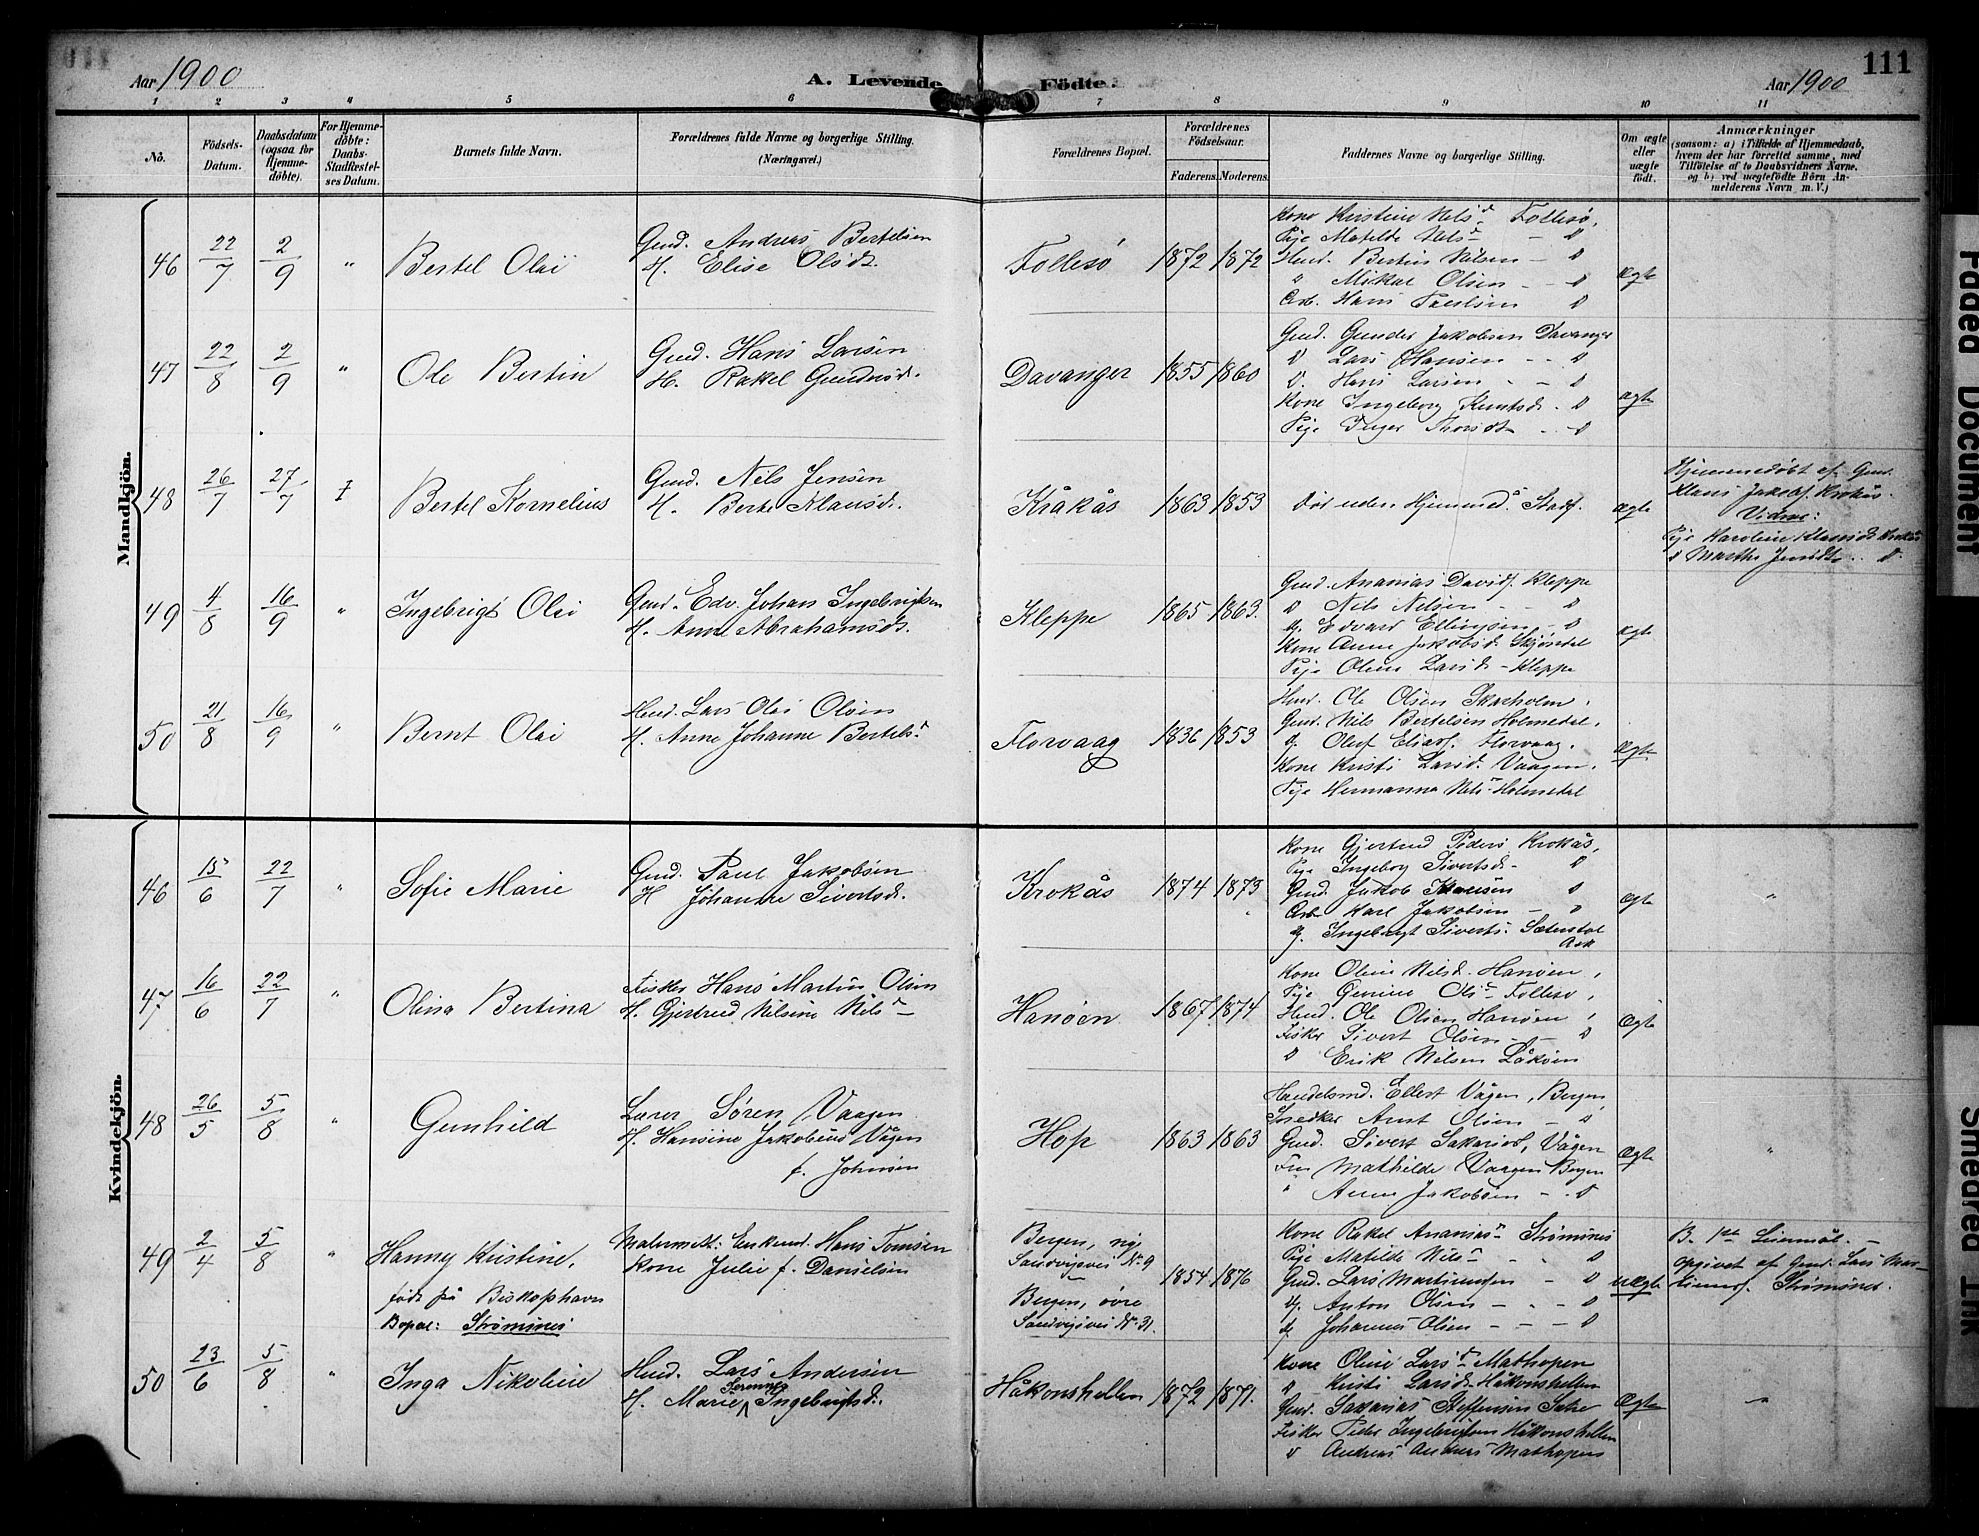 111
Aar 1900
A. Levende Födte.
Aar 1900
1 2 3 4 5 6 7 8 9 10 11
No.
Födsels-
Datum.
Daabsdatum
(ogsaa for
Hjemme-
döbte).
For Hjemme-
döbte:
Daabs-
Stadfæstel-
ses Datum.
Barnets fulde Navn.
Forældrenes fulde Navne og borgerlige Stilling.
(Næringsvei.)
Forældrenes Bopæl.
Forældrenes
Födselsaar.
Faderens. Moderens.
Faddernes Navne og borgerlige Stilling.
Om ægte
eller
uægte
födt.
Anmærkninger
(saasom: a) i Tilfælde af Hjemmedaab,
hvem der har forrettet samme, med
Tilföielse af to Daabsvidners Navne.
og b) ved uægtefödte Börn An-
melderens Navn m. V.)
Mandkjön.
46 22/7 2/9 " Bertel Olai
Gmd. Andreas Bertelsen
H. Elise Olsdt.
Follesø 1872 1872
Kone Kirstine Nilsd Follesø,
Pige Matilde Nilsd — D
Hmd. Bertin Nilsen — D
" Mikal Olsen — D
Arb. Hans Paulsen D
ægte
47 22/8 2/9 " Ole Bertin
Gmd. Hans Larsen
H. Rakel Gundersd.
Davanger 1855 1860
Gmd. Gunder Jakobsen Davanger
D Lars Hansen — D
D. Hans Larsen — D
Kone Ingeborg Knutsd. D
Pige Inger Thorsdt — D
ægte
48 26/7 27/7 Bertel Kornelius
Gmd. Nils Jensen
H. Berte Klausd.
Kråkås 1863 1853
Død uden Hjemmed. Stadf.
ægte
Hjemmedøbt af Gmd.
Klaus Jakobs. Krokås.
Vidner:
Pige Karoline Klausd. Krokås
D Marthe Jensdt. D.
49 4/8 16/9 " Ingebrigt Olai
Gmd. Edv. Johan Ingebrigtsen
H. Anne Abrahamsd.
Kleppe 1865 1863.
Gmd. Ananias Davids. Kleppe
D Nils Nilsen — D
Edvard Ellingsen — D
Kone Anne Jakobsd. Skjøndal
Pige Oline Larsd — Kleppe
ægte
50 21/8 16/9 " Bernt Olai
Hmd. Lars Olai Olsen
H. Anne Johanne Bertelsd
Florvaag 1836 1853
Hmd. Ole Olsen Skarholm.
Gmd. Nils Bertelsen Holmedal.
Oluf Elias. Florvaag.
Kone Kristi Larsd. Vaagen.
Pige Hermanna Nilsd Holmedal
ægte
Kvindekjön.
46 15/6 22/7 " Sofie Marie
Gmd. Paul Jakobsen
H Johanne Sivertsd.
Krokås 1874 1873
Kone Gjertrud Peders Krokås,
Pige Ingeborg Sivertsd — D
Gmd. Jakob D
Arb Karl Jakobsen — D
Ingebrigt Siverts. Sæterstøl
Ask
ægte "
47 16/6 22/7 " Olina Bertina
Fisker Hans Martin Olsen
H. Gjertrud Nilsine Nilsd
Hanøen 1867 1874
Kone Oline Nilsd. Hanøen,
Pige Gurine Olsd Follesø,
Hmd. Ole Olsen Hanøen,
Fisker Sivert Olsen — D
D Erik Nilsen
Ægte
48 26/5 5/8 " Gunhild
Lærer Søren Vaagen
H. Hansine Jakobine Vågen
f. Johnsen
Hop 1863 1863
Handelsmd. Ellert Vågen, Bergen,
Snedker Arnt Olsen — D
Gmd. Sivert Sakarias., Vågen
Fru Mathilde Vaagen Bergen
" Anne Jakobsen — D
Ægte "
49 2/4 5/8 " Hanny Kristine,
født på Biskophavn
Bopæl: Strømsnes
Malermstr. Enkemd. Hans Tomsen
Kone Julie f. Danielsen
Bergen, nye
Sandvigsvei No 9
Bergen, øvre
Sandvigsvei No. 31.
1854 1876
Kone Rakel Ananiasd Strømsnes
Pige Matilde Nilsd — D
Gmd. Lars Martinussen — D
Anton Olsen — D
Johannes Olsen — D
uægte
B. 1ste Leiermål. —
opgivet af Gmd. Lars Mar-
tinus. Strømsnes.
50 23/6 5/8 " Inga Nikoline
Hmd. Lars Andersen
H. Marie Serenne Ingebrigtsd.
Håkonshellen 1872 1871.
Kone Oline Larsd Mathopen
D Kristi Larsd. Håkonshellen
Gmd. Sakarias Steffensen
Fisker Peder Ingebrigtsen Håkonshellen
D Andreas Anders Mathopen
Ægte "
Faded Document
Smeared Ink